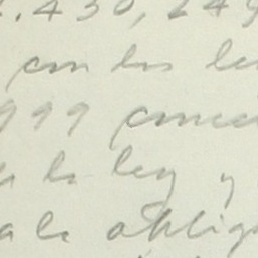 . 430, 249
con los le
999 conce
a la ley y
ala oblig